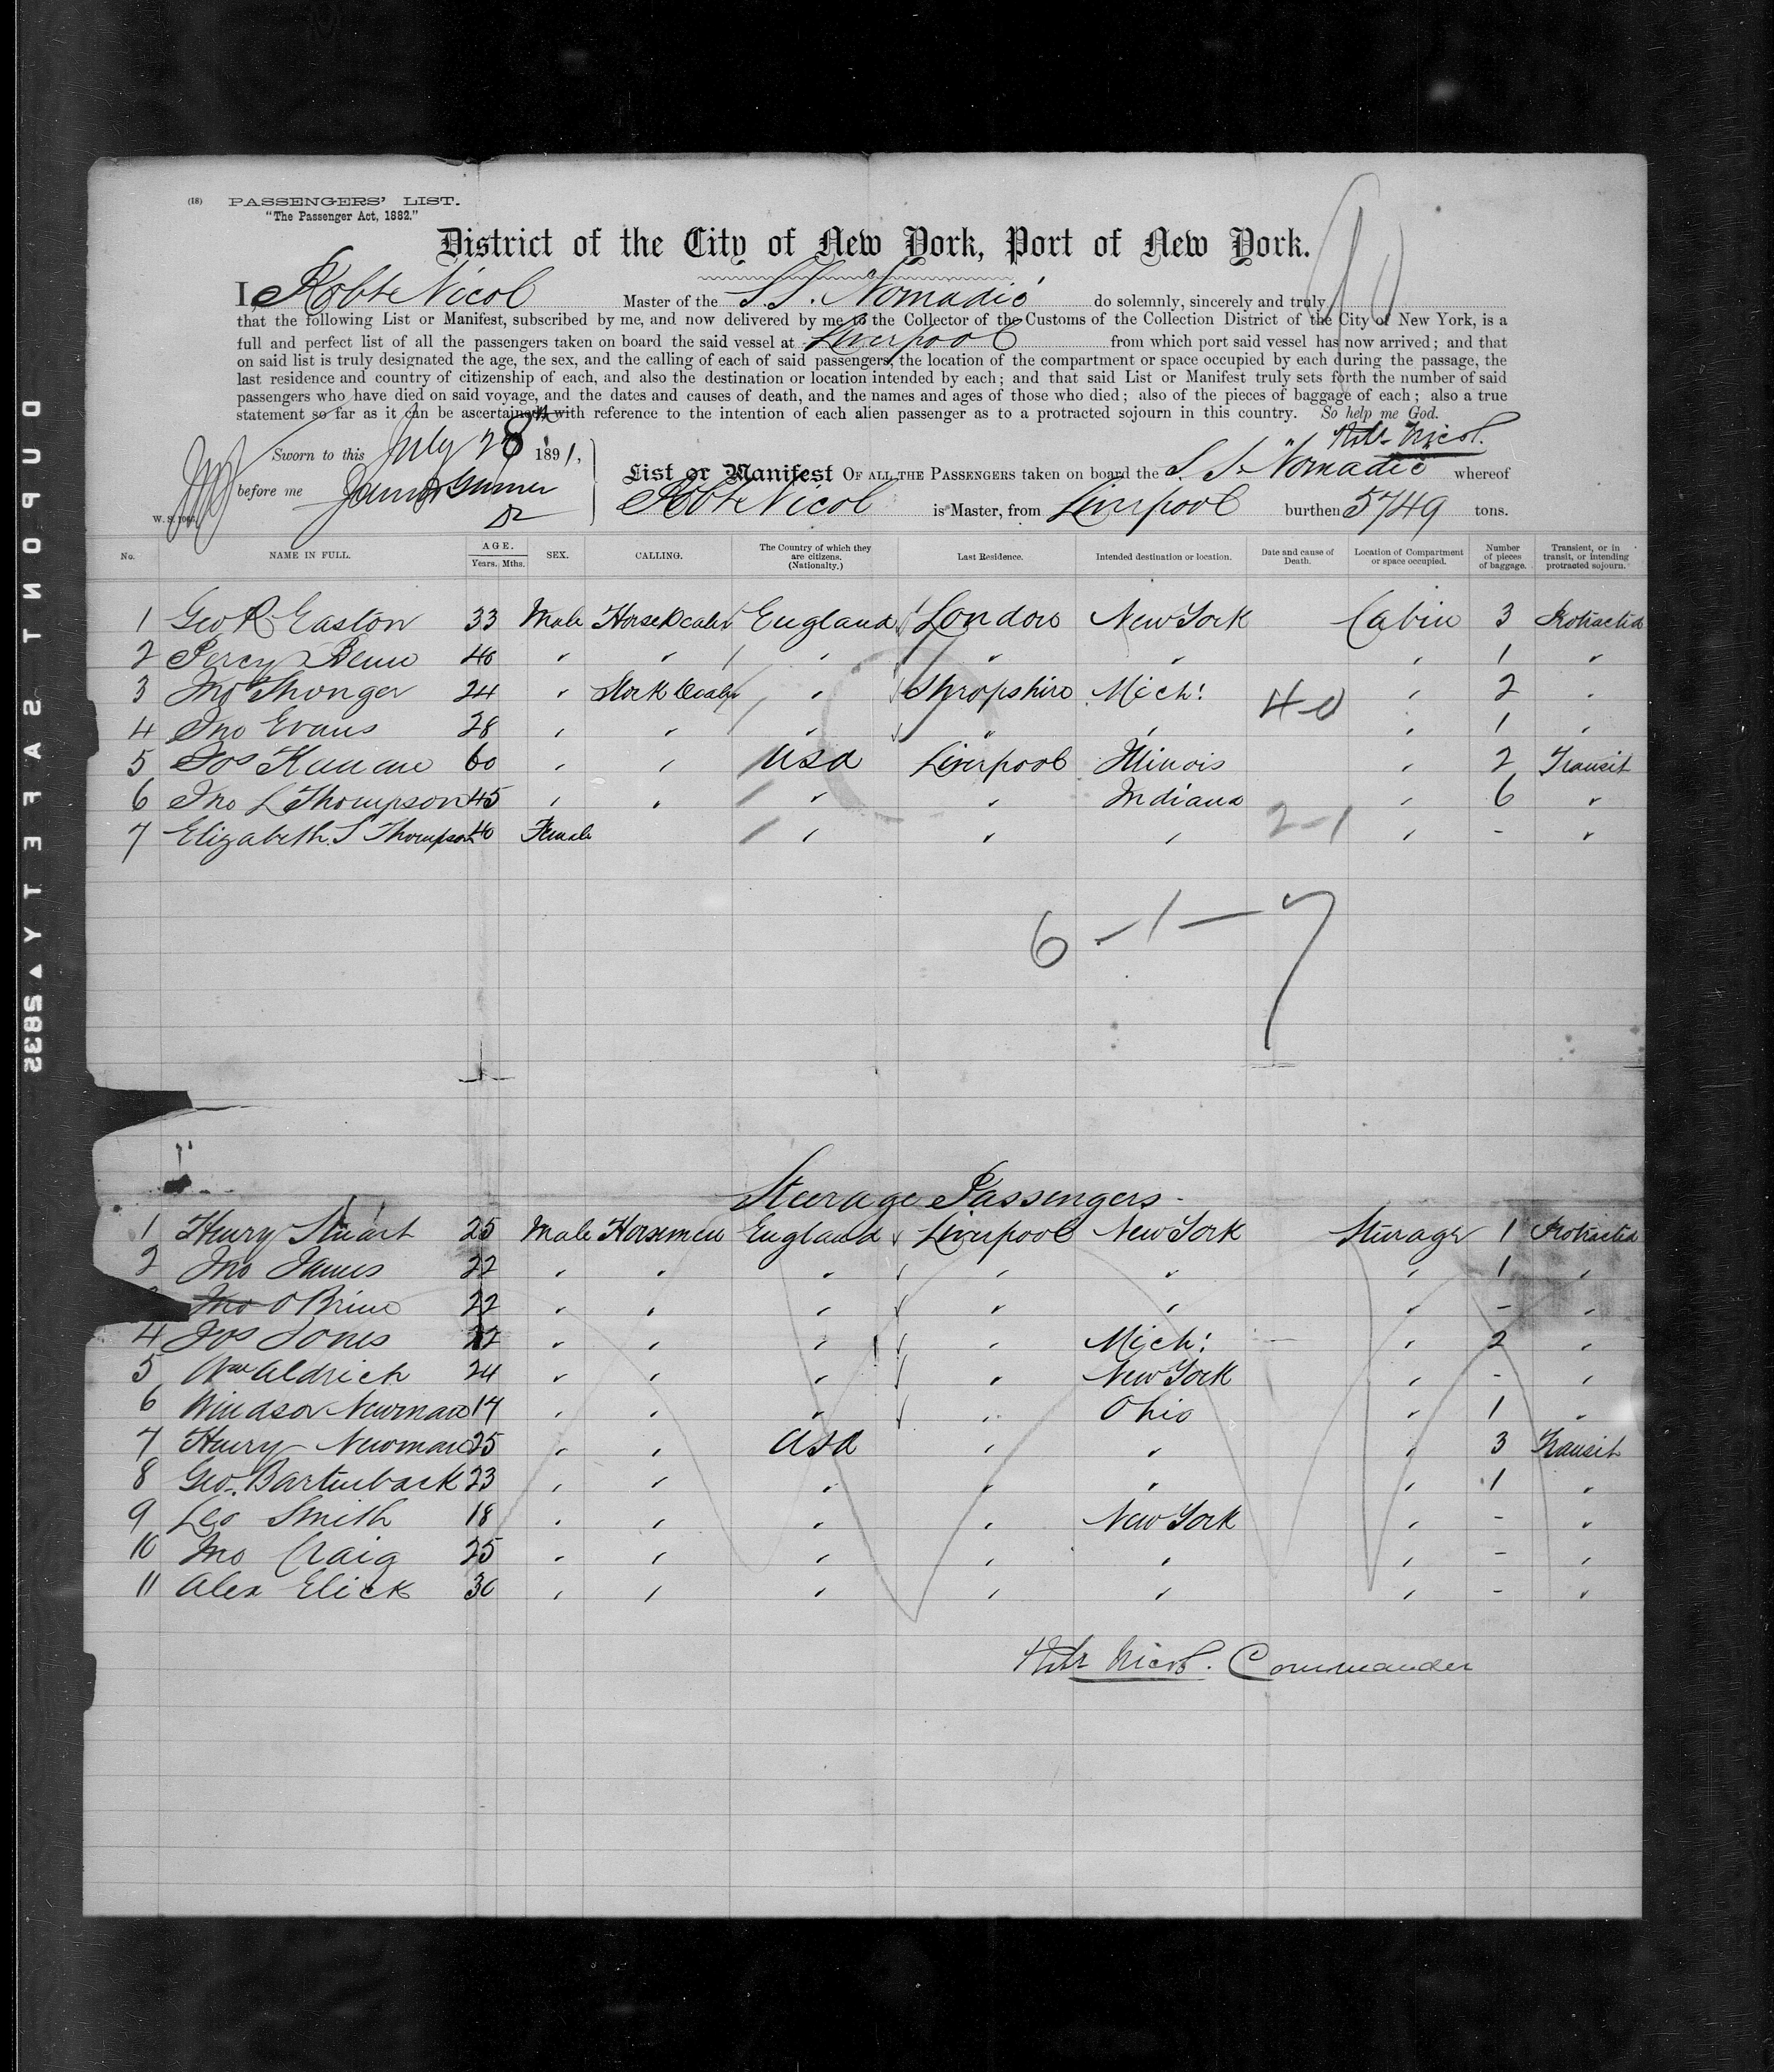 (18) PASSENGERS' LIST.
"The Passenger Act, 1882."
District of the City of New York, Port of New York.
I, Robt Nicol Master of the S.S. Nomadic do solemnly, sincerely and truly
that the following List or Manifest, subscribed by me, and now delivered by me to the Collector of the Customs of the Collection District of the City of New York, is a
full and perfect list of all the passengers taken on board the said vessel at Liverpool from which port said vessel has now arrived; and that
on said list is truly designated the age, the sex, and the calling of each of said passengers, the location of the compartment or space occupied by each during the passage, the
last residence and country of citizenship of each, and also the destination or location intended by each; and that said List or Manifest truly sets forth the number of said
passengers who have died on said voyage, and the dates and causes of death, and the names and ages of those who died; also of the pieces of baggage of each; also a true
statement so far as it can be ascertained with reference to the intention of each alien passenger as to a protracted sojourn in this country. So help me God.
Robt Nicol.
Sworn to this July 28th 1891,
before me
List or Manifest OF ALL THE PASSENGERS taken on board the S.S. "Nomadic whereof
Robt Nicol is Master, from Liverpool burthen 5749 tons.
No. NAME IN FULL. AGE. Years. Mths. SEX. CALLING. The Country of which they are citizens. (Nationalty.) Last Residence. Intended destination or location. Date and cause of Death. Location of Compartment or space occupied. Number of pieces of baggage. Transient, or in transit, or intending protracted sojourn.
1 Geo R Easton 33 Male Horse Dealer England London New York Cabin 3 Protracted
2 Percy 40 " " " " " " 1 "
3 Jno Thonger 24 " Stock Dealer " Shropshire Mich: " 2 "
4 Jno Evans 28 " " " " " " 1 "
4-0
5 Jos 60 " " USA Liverpool Illinois " 2 Transit
6 Jno L Thompson 45 " " " " Indiana " 6 "
7 Elizabeth S Thompson 40 Female " " " " - "
2-1
6-1-7
Steerage Passengers
1 Henry Stuart 25 Male Horsemen England Liverpool New York Steerage 1 Protracted
2 Jno James 22 " " " " " " 1 "
Jno O'Brine 22 " " " " " " - "
4 Jos Jones 22 " " " " Mich: " 2 "
5 Wm Aldrich 24 " " " " New York " - "
6 Windsor Newman 17 " " " " Ohio " 1 "
7 Henry Newman 25 " " USA " " " 3 Transit
8 Geo. Bartenback 23 " " " " " " 1 "
9 Leo Smith 18 " " " " New York " - "
10 Jno Craig 25 " " " " " " - "
11 Alex Elick 30 " " " " " " - "
Robt Nicol. Commander
DUPONT SAFETY ▲ 5832